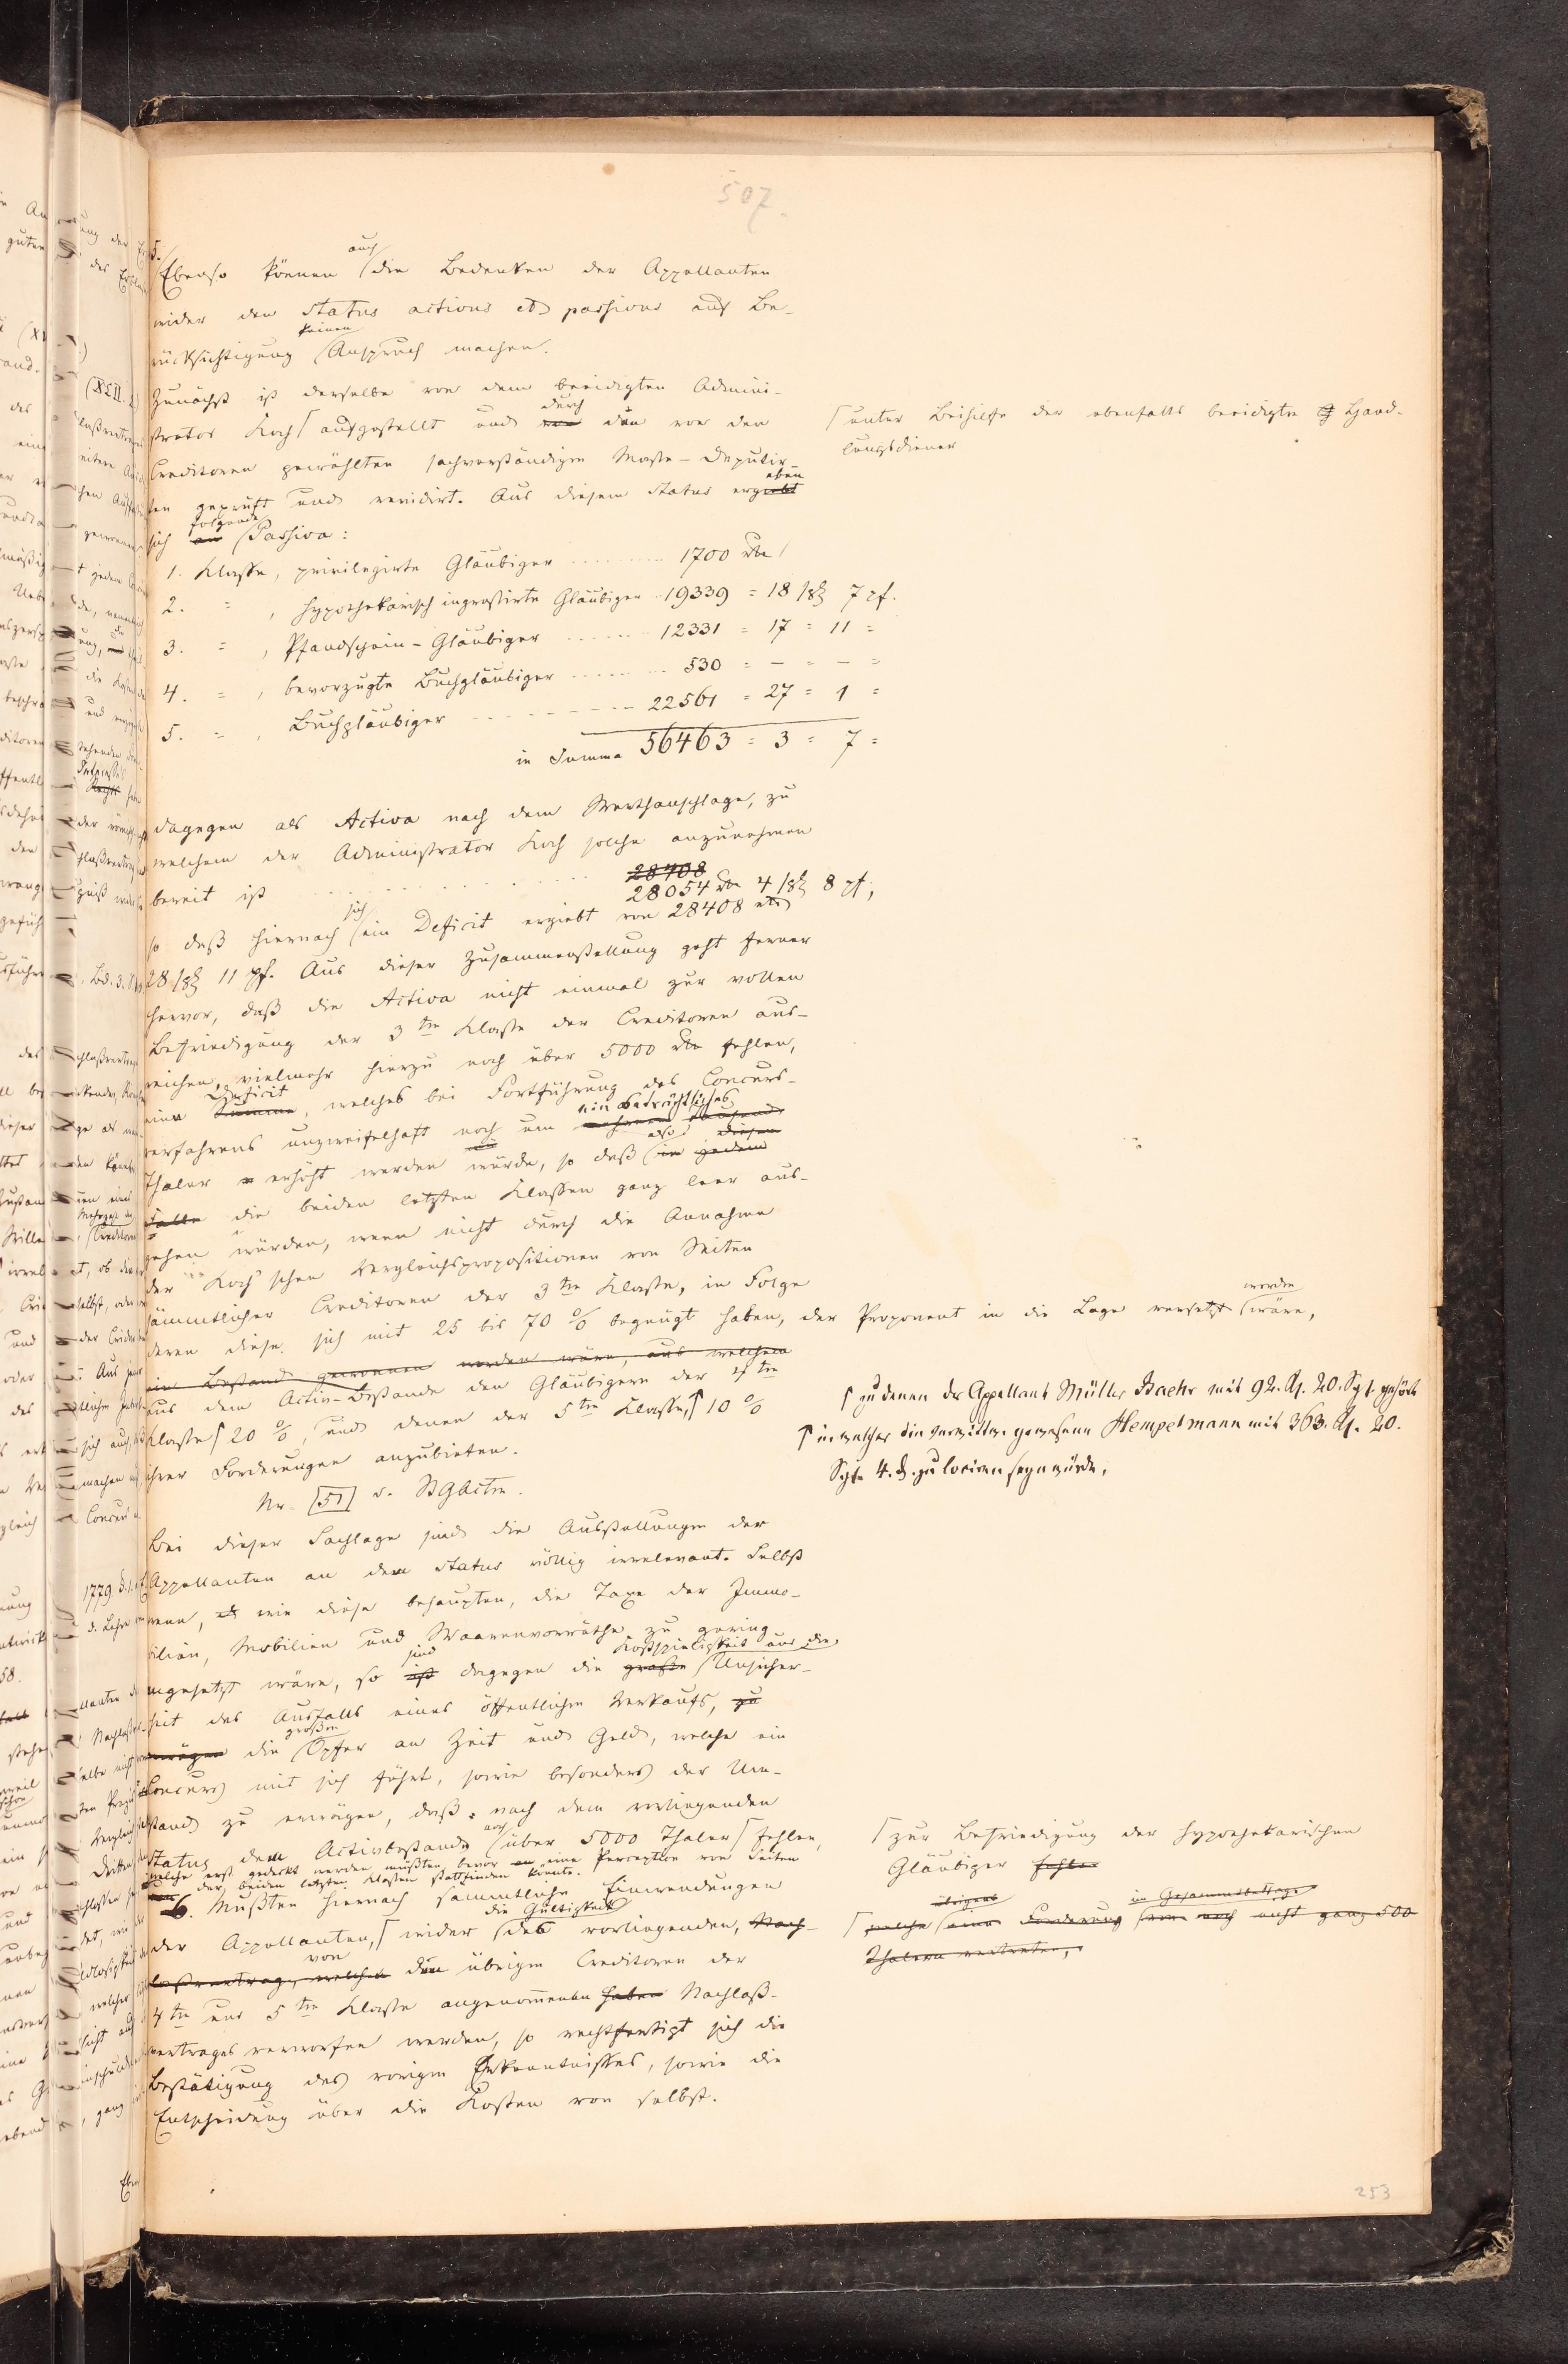 507.
5.
Ebenso können auch die Bedenken der Appellanten
wider den status activus et passivus auf Be-
rücksichtigung keinen Anspruch machen.
Zunächst ist derselbe von dem beeidigten Admini-
strator Koch aufgestellt und durch die von den
unter Beihilfe der ebenfalls beeidigten Hand-
lungsdiener
Creditoren gewählten sachverständigen Masse-Deputir-
ten geprüft und revidirt. Aus diesem Status ergeben
sich folgende Passiva:
1. Klasse, privilegirte Gläubiger 1700 Rtl
2. = , hypothekarisch ingrossirte Gläubiger 19339 = 18 sg 7 pf.
3. = , Pfandschein-Gläubiger 12331 = 17 = 11 =
4. = , bevorzugte Buchgläubiger 530 = - = - =
5. = , Buchgläubiger 22561 = 27 = 1 =
in Summa 56463 = 3 = 7 =
dagegen als Activa nach dem Werthanschlage, zu
welchem der Administrator Koch solche anzunehmen
28408
bereit ist 28054 Rtl 4 sg 8 pf,
so daß hiernach sich ein Deficit ergiebt von 28408 rtl
28 sg 11 pf. Aus dieser Zusammenstellung geht ferner
hervor, daß die Activa nicht einmal zur vollen
Befriedigung der 3ten Klasse der Creditoren aus-
reichen, vielmehr hierzu noch über 5000 Rtl fehlen,
ein Deficit, welches bei Fortführung des Concurs-
verfahrens unzweifelhaft noch um ein Beträchtliches
Thaler erhöht werden würde, so daß also in jedem
Falle die beiden letzten Klassen ganz leer aus-
gehen würden, wenn nicht durch die Annahme
der Koch'schen Vergleichspropositionen von Seiten
sämmtlicher Creditoren der 3ten Klasse, in Folge
deren diese sich mit 25 bis 70 % begnügt haben, der Proponent in die Lage versetzt worden wäre,
in Bestand gewonnen worden wäre, aus welchem
aus dem Activ-Bestande den Gläubigern der 4ten
zu denen der Appellant Müller Baehr mit 92. Rtl. 20. Sgl. gehört
Klasse 20 %, und denen der 5ten Klasse, 10 %
in welcher die verwittwe gewesene Hempelmann mit 363. Rtl. 20.
ihrer Forderungen anzubieten.
Sgl. 4. d. zu lociren seyn würde,
Nr. 51 d. StGActen.
Bei dieser Sachlage sind die Ausstellungen der
Appellanten an dem Status völlig irrelevant. Selbst
wenn, wie diese behaupten, die Taxe der Immo-
bilien, Mobilien und Waarenvorräthe zu gering
angesetzt wäre, so sind dagegen die große Kostspieligkeit und die Unsicher-
heit des Ausfalls eines öffentlichen Verkaufs, zu
erwägen die großen Opfer an Zeit und Geld, welche ein
Concurs mit sich führt, sowie besonders der Um-
stand zu erwägen, daß nach dem vorliegenden
Status dem Activbestande noch über 5000 Thaler fehlen,
zur Befriedigung der hypothekarischen
Gläubiger fehlen
welche erst gedeckt werden müßten bevor an eine Perception von Seiten
der beiden letzten Klassen stattfinden könnte.
6. Mußten hiernach sämmtliche Einwendungen
der Appellanten, wider die Gültigkeit des vorliegenden, Nach-
welche übrigens eine Forderung im Gesammtbetrage von noch nicht ganz 500
Thalern vertreten,
laßvertrag, welchen von den übrigen Creditoren der
4ten und 5ten Klasse angenommenen haben Nachlaß-
vertrages verworfen werden, so rechtfertigt sich die
Bestätigung des vorigen Erkenntnisses, sowie die
Entscheidung über die Kosten von selbst.
253